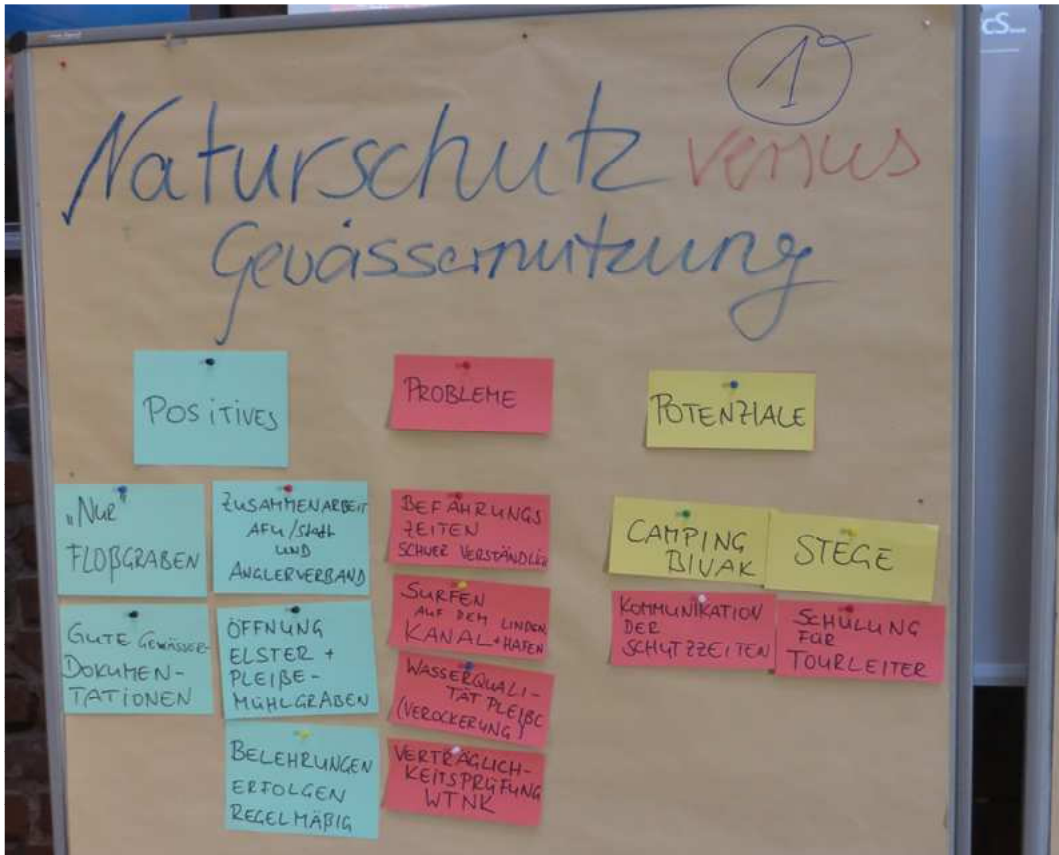 cS...
1
Naturschutz versus
Gewässernutzung
POSITIVES
PROBLEME
POTENZIALE
„NUR"
FLOßGRABEN
ZUSAMMENARBEIT
AFU/Stadt
UND
ANGLERVERBAND
GUTE GEWÄSSER-
DOKUMEN-
TATIONEN
ÖFFNUNG
ELSTER +
PLEIßE-
MÜHLGRABEN
BELEHRUNGEN
ERFOLGEN
REGELMÄßIG
BEFAHRUNGS
ZEITEN
SCHWER VERSTÄNDLICH
SURFEN
AUF DEM LINDEN.
KANAL + HAFEN
WASSERQUALI-
TÄT PLEIßE
(VEROCKERUNG)
VERTRÄGLICH-
KEITSPRÜFUNG
WTNK
CAMPING
BIVAK
STEGE
KOMMUNIKATION
DER
SCHUTZZEITEN
SCHULUNG
FÜR
TOURLEITER